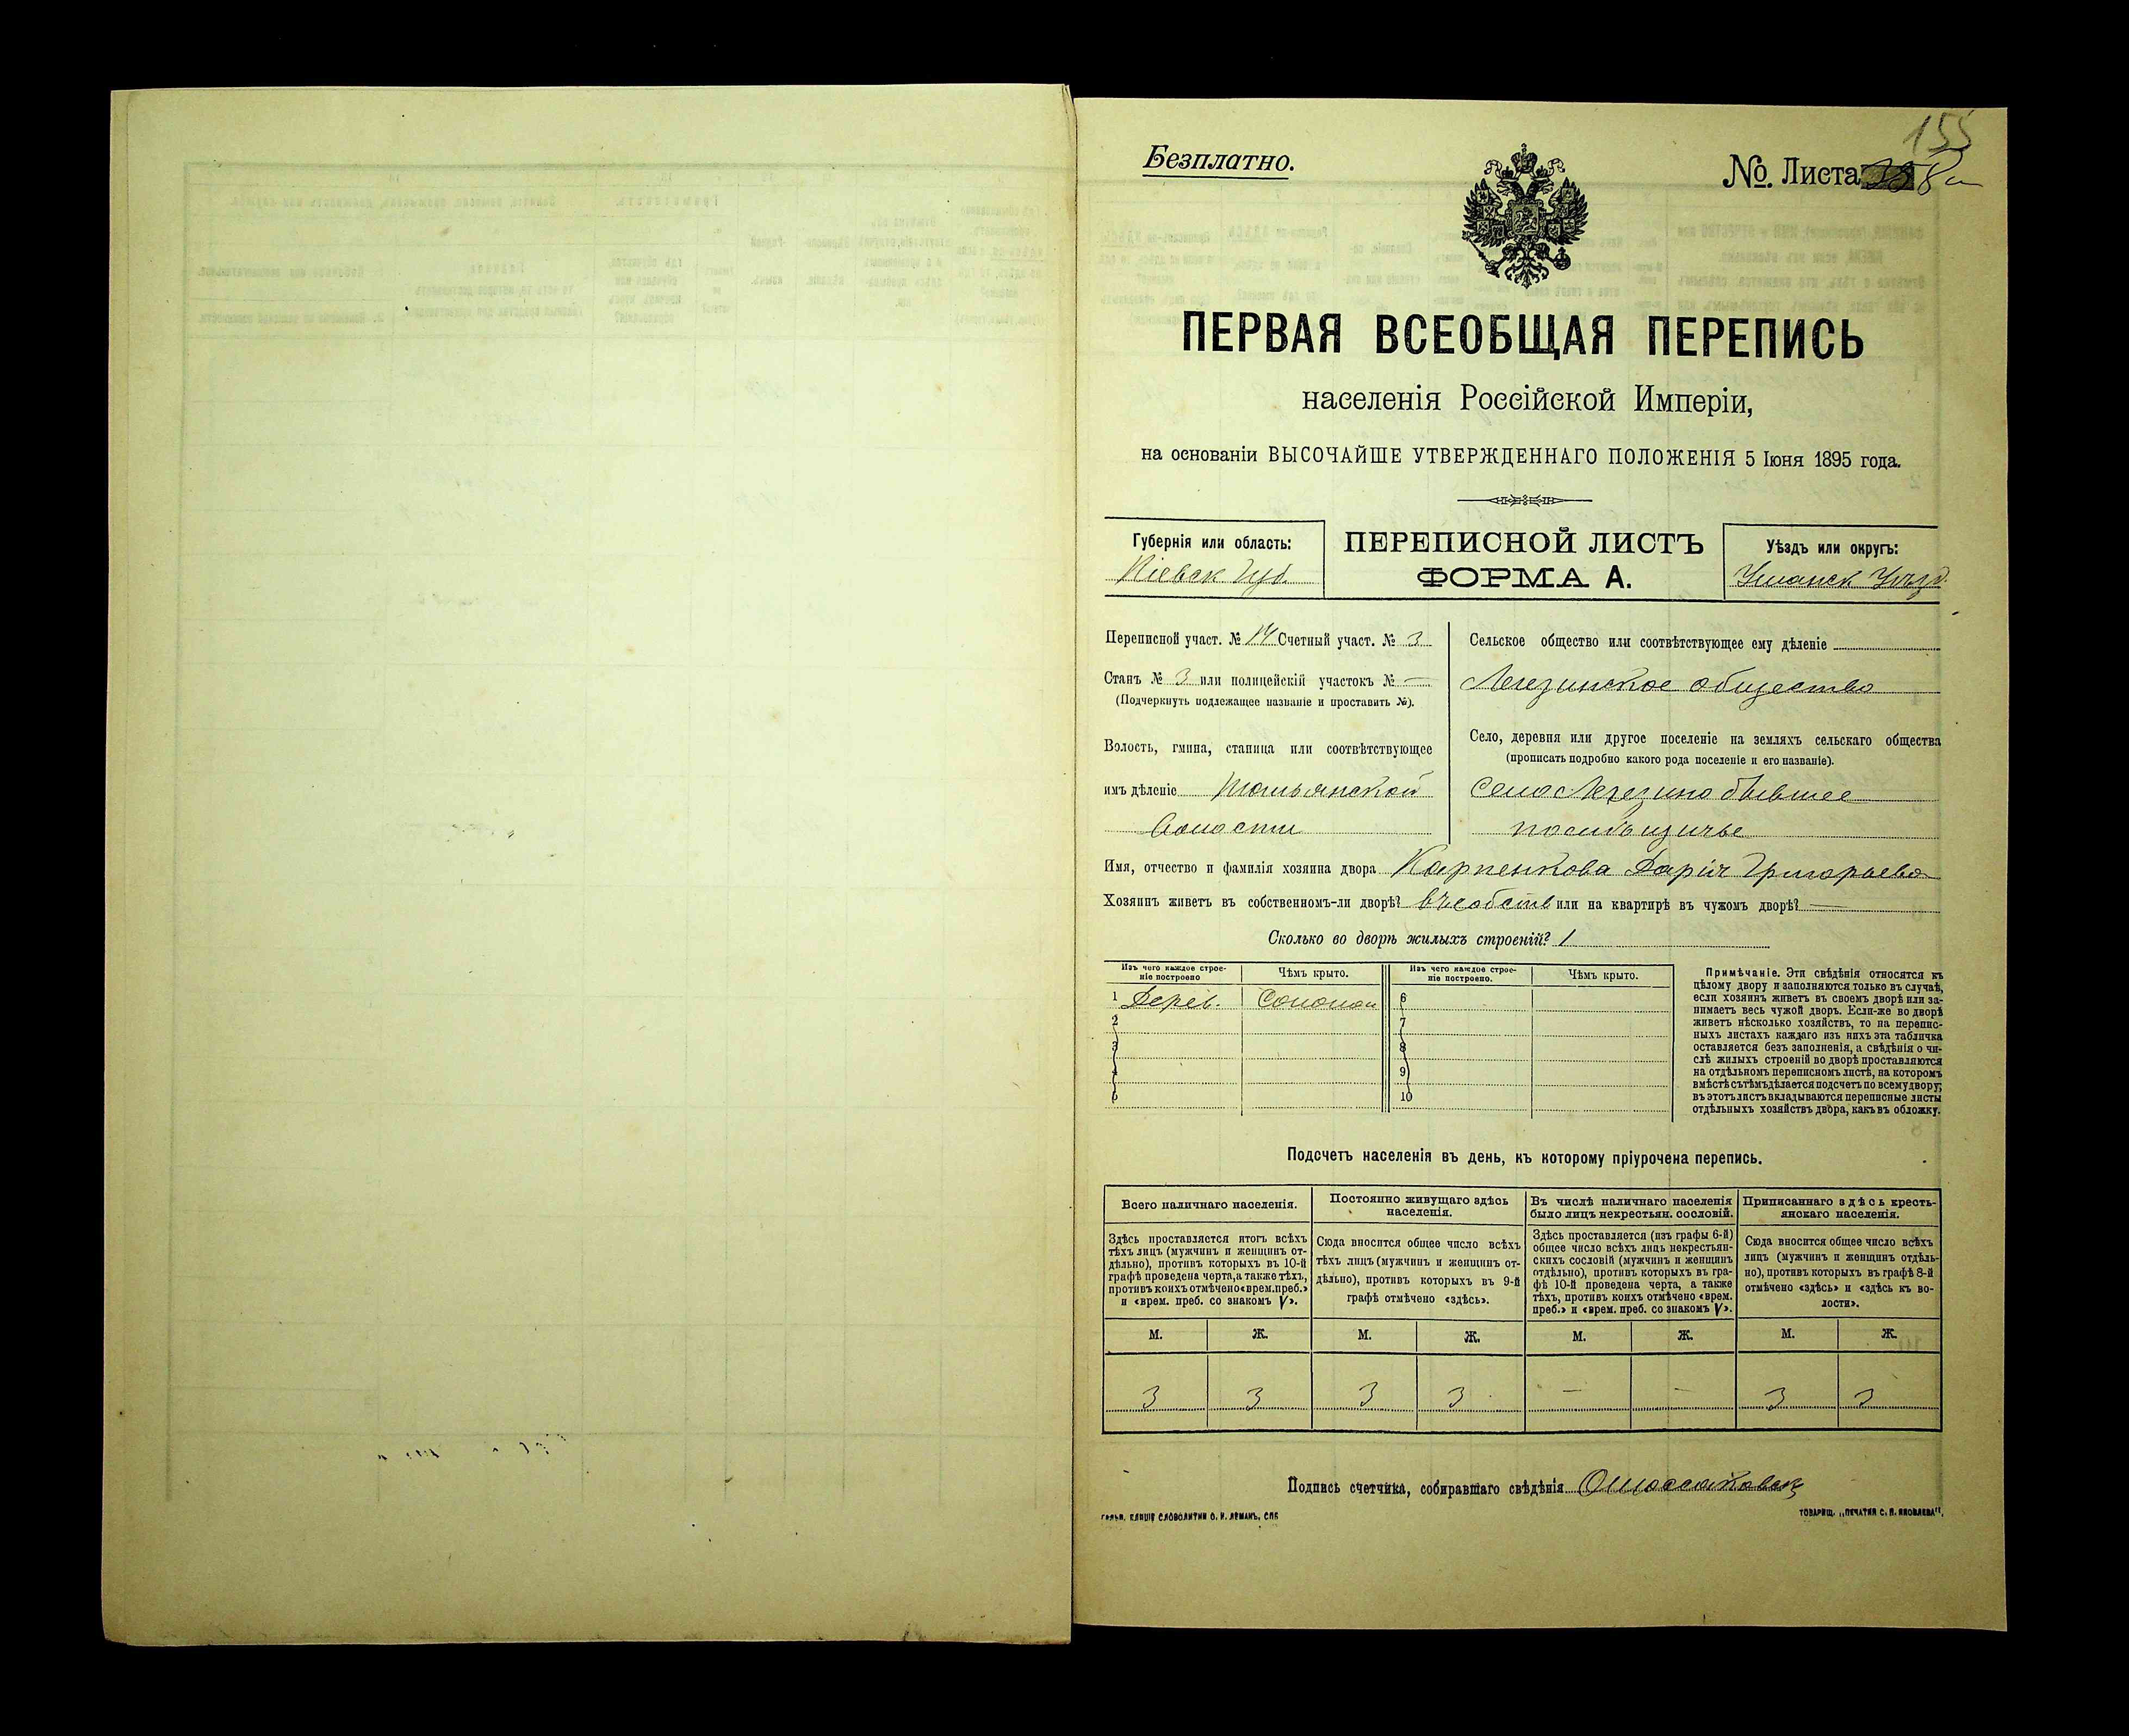 155
Безплатно.
№. Листа
ПЕРВАЯ ВСЕОБЩАЯ ПЕРЕПИСЬ
населенія Россійской Имперіи,
на основаніи ВЫСОЧАЙШЕ УТВЕРЖДЕННАГО ПОЛОЖЕНІЯ 5 Іюня 1895 года.
Губернія или область:
Кіевск Губ.
ПЕРЕПИСНОЙ ЛИСТЪ
ФОРМА А.
Уѣздъ или округъ:
Уманск Уѣзд.
Переписной участ. № 14 Счетный участ. № 3
Станъ № 3 или полицейскій участокъ № —
(Подчеркнуть подлежащее названіе и проставить №).
Волость, гмина, станица или соотвѣтствующее
имъ дѣленіе Тальянской
Волости
Сельское общество или соотвѣтствующее ему дѣленіе
Легезинское общество
Село, деревня или другое поселеніе на земляхъ сельскаго общества
(прописать подробно какого рода поселеніе и его названіе).
Село Легезино бывшее
помѣщичье
Имя, отчество и фамилія хозяина двора Карпенкова Дарія Григорьева
Хозяинъ живетъ въ собственномъ-ли дворѣ? въ собств или на квартирѣ въ чужомъ дворѣ? —
Сколько во дворѣ жилыхъ строеній? 1
Изъ чего каждое строе-
ніе построено
Чѣмъ крыто.
Изъ чего каждое строе-
ніе построено.
Чѣмъ крыто.
1 Дерев. Соломой 6
2 7
3 8
4 9
5 10
Примѣчаніе. Эти свѣдѣнія относятся къ
цѣлому двору и заполняются только въ случаѣ,
если хозяинъ живетъ въ своемъ дворѣ или за-
нимаетъ весь чужой дворъ. Если-же во дворѣ
живетъ нѣсколько хозяйствъ, то на перепис-
ныхъ листахъ каждаго изъ нихъ эта табличка
оставляется безъ заполненія, а свѣдѣнія о чи-
слѣ жилыхъ строеній во дворѣ проставляются
на отдѣльномъ переписномъ листѣ, на которомъ
вмѣстѣ съ тѣмъ дѣлается подсчетъ по всему двору;
въ этотъ листъ вкладываются переписные листы
отдѣльныхъ хозяйствъ двора, какъ въ обложку.
Подсчетъ населенія въ день, къ которому пріурочена перепись.
Всего наличнаго населенія.
Здѣсь проставляется итогъ всѣхъ
тѣхъ лицъ (мужчинъ и женщинъ от-
дѣльно), противъ которыхъ въ 10-й
графѣ проведена черта, а также тѣхъ,
противъ коихъ отмѣчено «врем. преб.»
и «врем. преб. со знакомъ V».
Постоянно живущаго здѣсь
населенія.
Сюда вносится общее число всѣхъ
тѣхъ лицъ (мужчинъ и женщинъ от-
дѣльно), противъ которыхъ въ 9-й
графѣ отмѣчено «здѣсь».
Въ числѣ наличнаго населенія
было лицъ некрестьян. сословій.
Здѣсь проставляется (изъ графы 6-й)
общее число всѣхъ лицъ некрестьян-
скихъ сословій (мужчинъ и женщинъ
отдѣльно), противъ которыхъ въ гра-
фѣ 10-й проведена черта, а также
тѣхъ, противъ коихъ отмѣчено «врем.
преб.» и «врем. преб. со знакомъ V».
Приписаннаго здѣсь кресть-
янскаго населенія.
Сюда вносится общее число всѣхъ
лицъ (мужчинъ и женщинъ отдѣль-
но), противъ которыхъ въ графѣ 8-й
отмѣчено «здѣсь» и «здѣсь къ во-
лости».
М. Ж. М. Ж. М. Ж. М. Ж.
3 3 3 3 — — 3 3
Подпись счетчика, собиравшаго свѣдѣнія
КЛИШЕ СЛОВОЛИТНИ О. И. ЛЕМАНЪ, СПБ
ТОВАРИЩ. „ПЕЧАТНЯ С. П. ЯКОВЛЕВА".